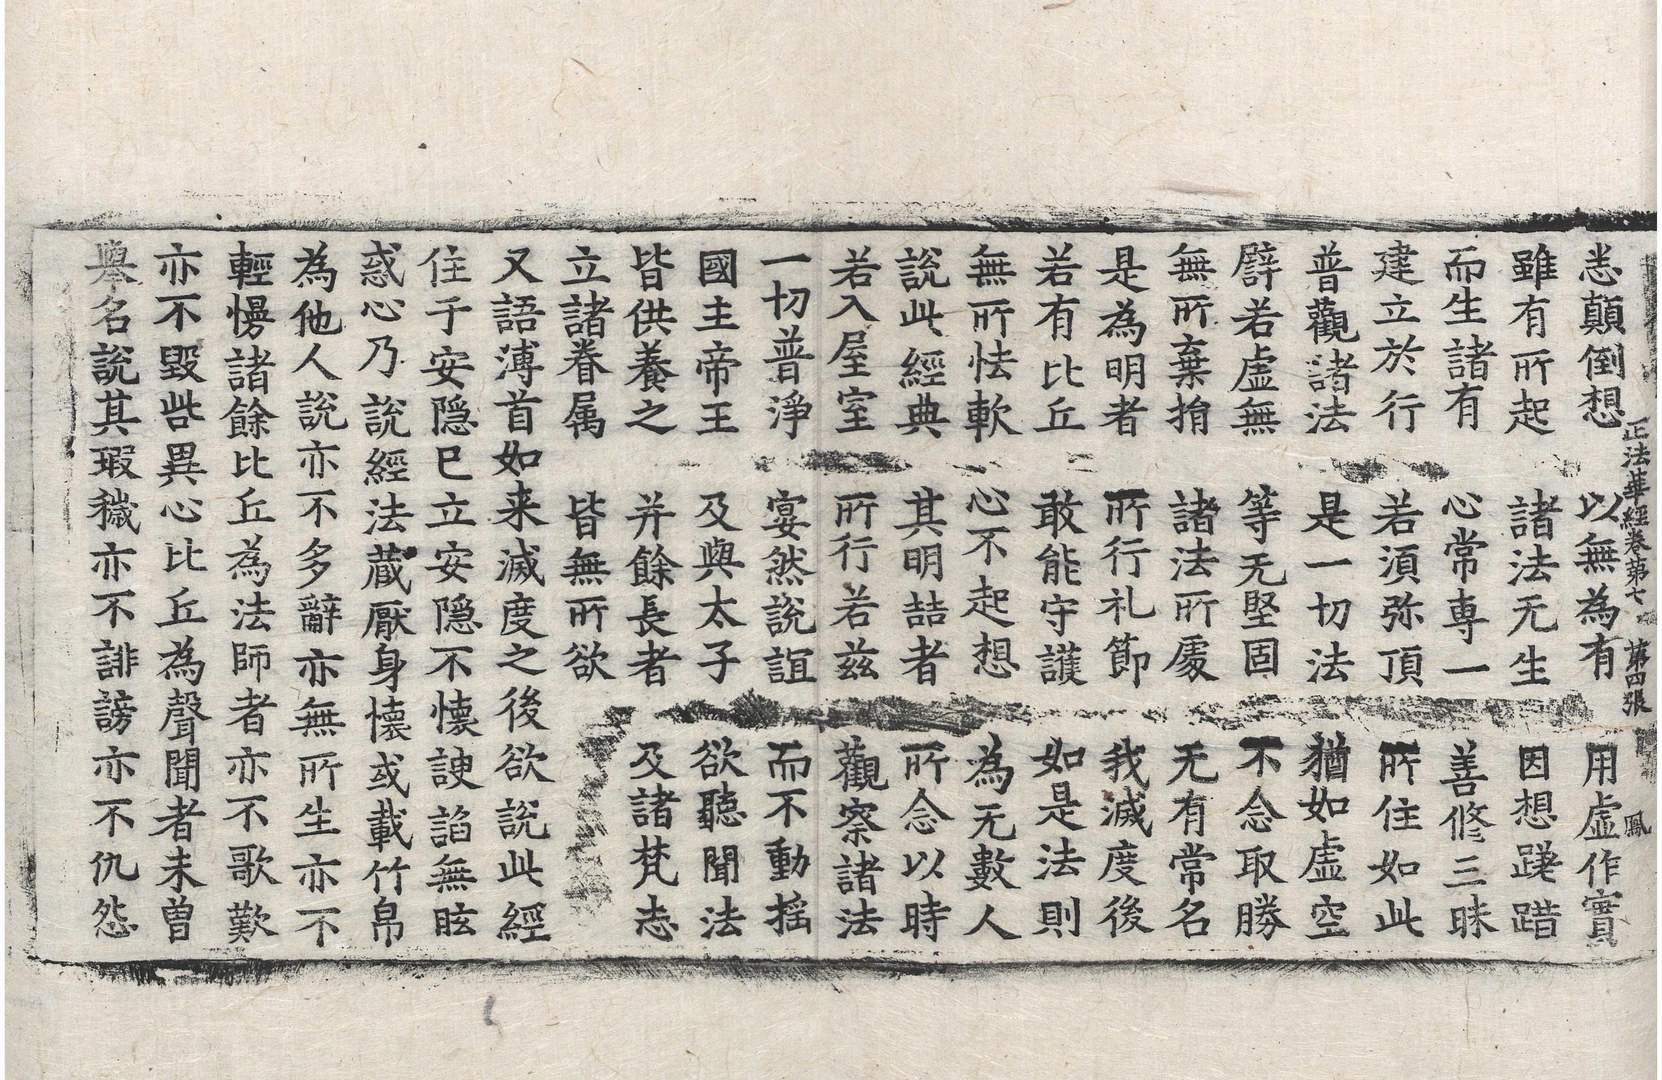 正法華經卷第七 第四張 鳳
恚顛倒想 以無為有 用虛作實
雖有所起 諸法无生 因想蹉踖
而生諸有 心常專一 善修三昧
建立於行 若湏弥頂 所住如此
普觀諸法 是一切法 猶如虛空
譬若虛無 等无堅固 不念取勝
無所棄捐 諸法所處 无有常名
是為明者 所行礼節 我滅度後
若有比丘 敢能守護 如是法則
無所怯軟 心不起想 為无數人
說此經典 其明喆者 所念以時
若入屋室 所行若茲 觀察諸法
一切普淨 宴然說誼 而不動揺
國主帝王 及與太子 欲聽聞法
皆供養之 并餘長者 及諸梵志
立諸眷属 皆無所欲
又語溥首如来滅度之後欲說此經
住于安隠已立安隠不懐諛諂無眩
惑心乃說經法蔵厭身懐或載竹帛
為他人說亦不多辭亦無所生亦不
輕慢諸餘比丘為法師者亦不歌歎
亦不毀呰異心比丘為聲聞者未曽
舉名說其瑕穢亦不誹謗亦不仇怨